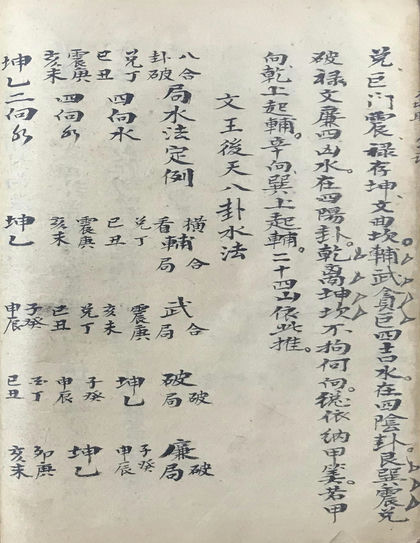 兌巨门震祿存坤文曲坎輔武貪巨四吉水在四陰卦艮巽震兌
破祿文廉四凶水在四陽卦乾離坤坎不拘何向總依納甲筭若甲
向乾上起輔辛向巽上起輔二十四山依此推
文王後天八卦水法
八合卦破局水法定例 橫合看輔局 武合局 破破局 廉破局
兌丁 四向水 兌丁 震庚 子癸
巳丑 巳丑 亥未 坤乙 申辰
震庚 四向水 震庚 兌丁 子癸 坤乙
亥未 亥未 巳丑 申辰 卯庚
坤乙二向水 坤乙 子癸 申辰 巳丑 亥未